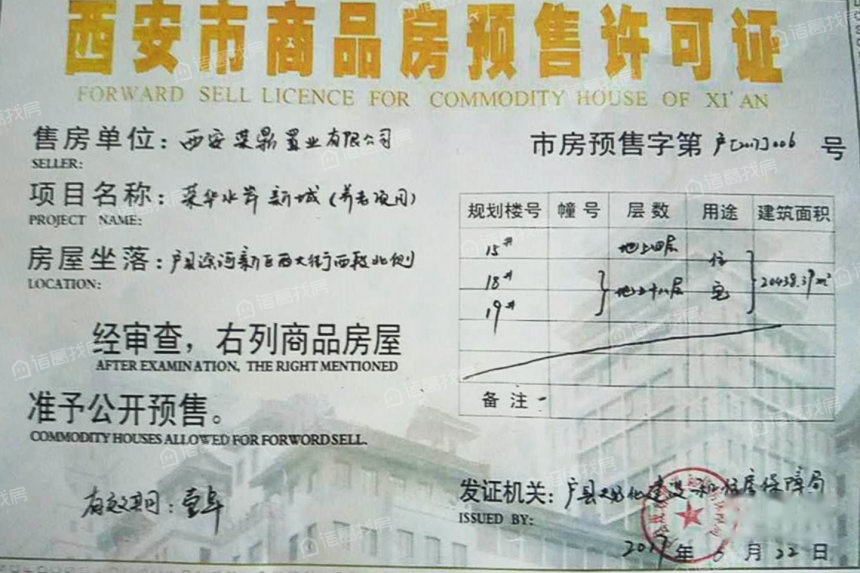 西安市商品房预售许可证
FORWARD SELL LICENCE FOR COMMODITY HOUSE OF XI'AN
售房单位：西安荣鼎置业有限公司
SELLER:
市房预售字第户[2017]006号
项目名称：荣华水岸新城(养老项目)
PROJECT NAME:
房屋坐落：户县涝河新区西大街西段北侧
LOCATION:
规划楼号 幢号 层数 用途 建筑面积
15# 地上四层 住
18# 地上十八层 宅 20438.37m²
19#
备注
经审查，右列商品房屋
AFTER EXAMINATION, THE RIGHT MENTIONED
准予公开预售。
COMMODITY HOUSES ALLOWED FOR FORWORD SELL.
有效期：
发证机关：户县城乡建设和住房保障局
ISSUED BY:
2017年6月22日
诸葛找房